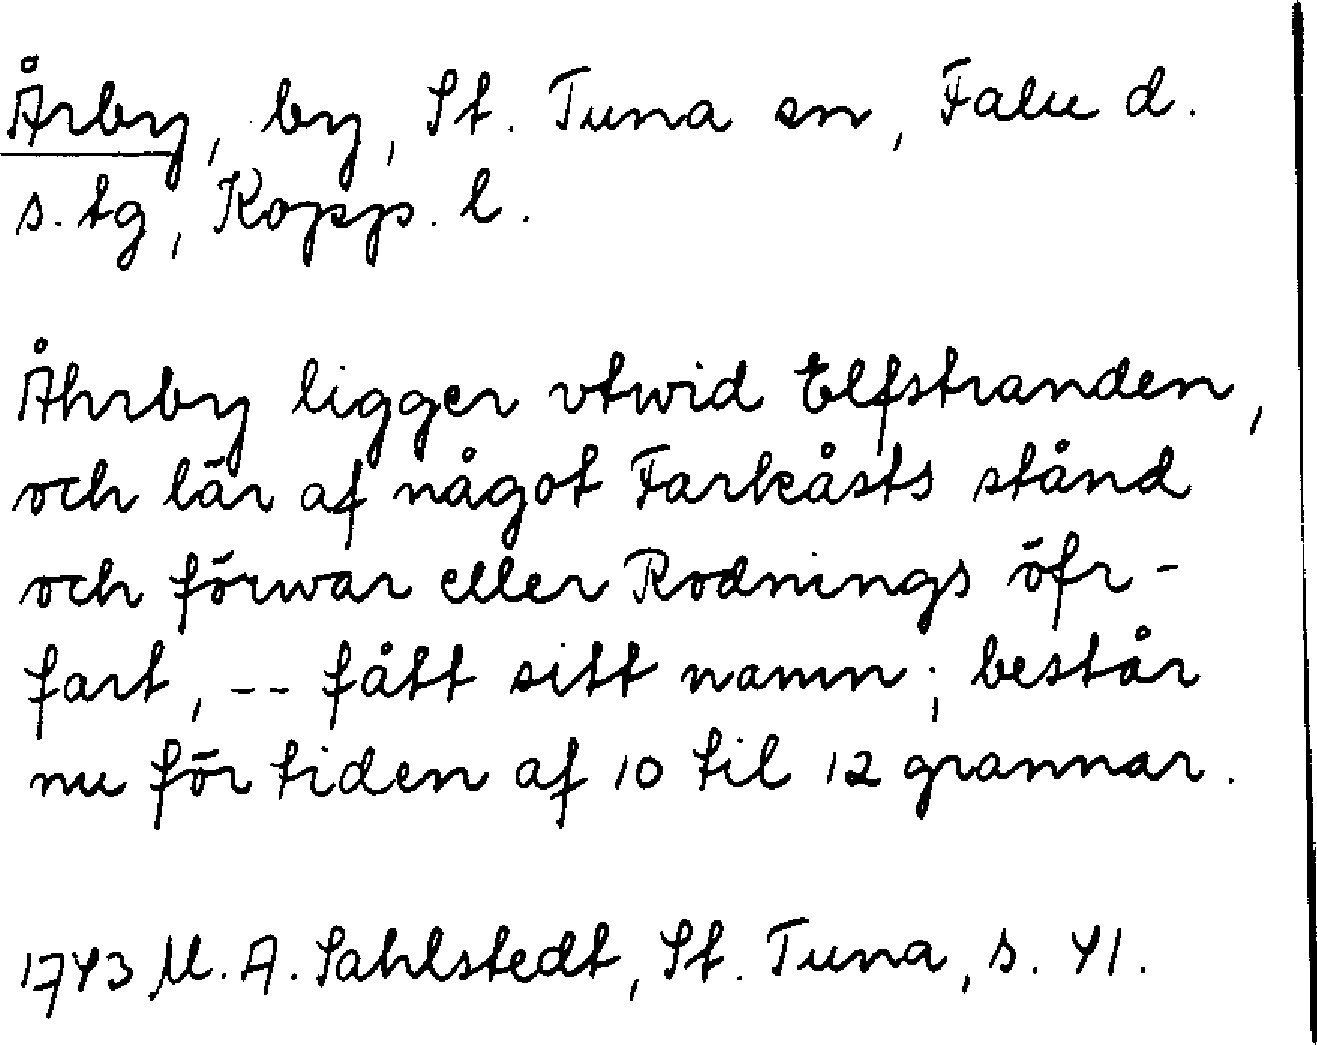 Årby, by, St. Tuna sn, Falu d.
s. tg, Kopp. l.
Åhrby ligger vtwid Elfstranden,
och lär af något Farkåsts stånd
och förwar eller Rodnings öfr-
fart, -- fått sitt namn; består
nu för tiden af 10 til 12 grannar.
1743 M. A. Sahlstedt, St. Tuna, s. 41.